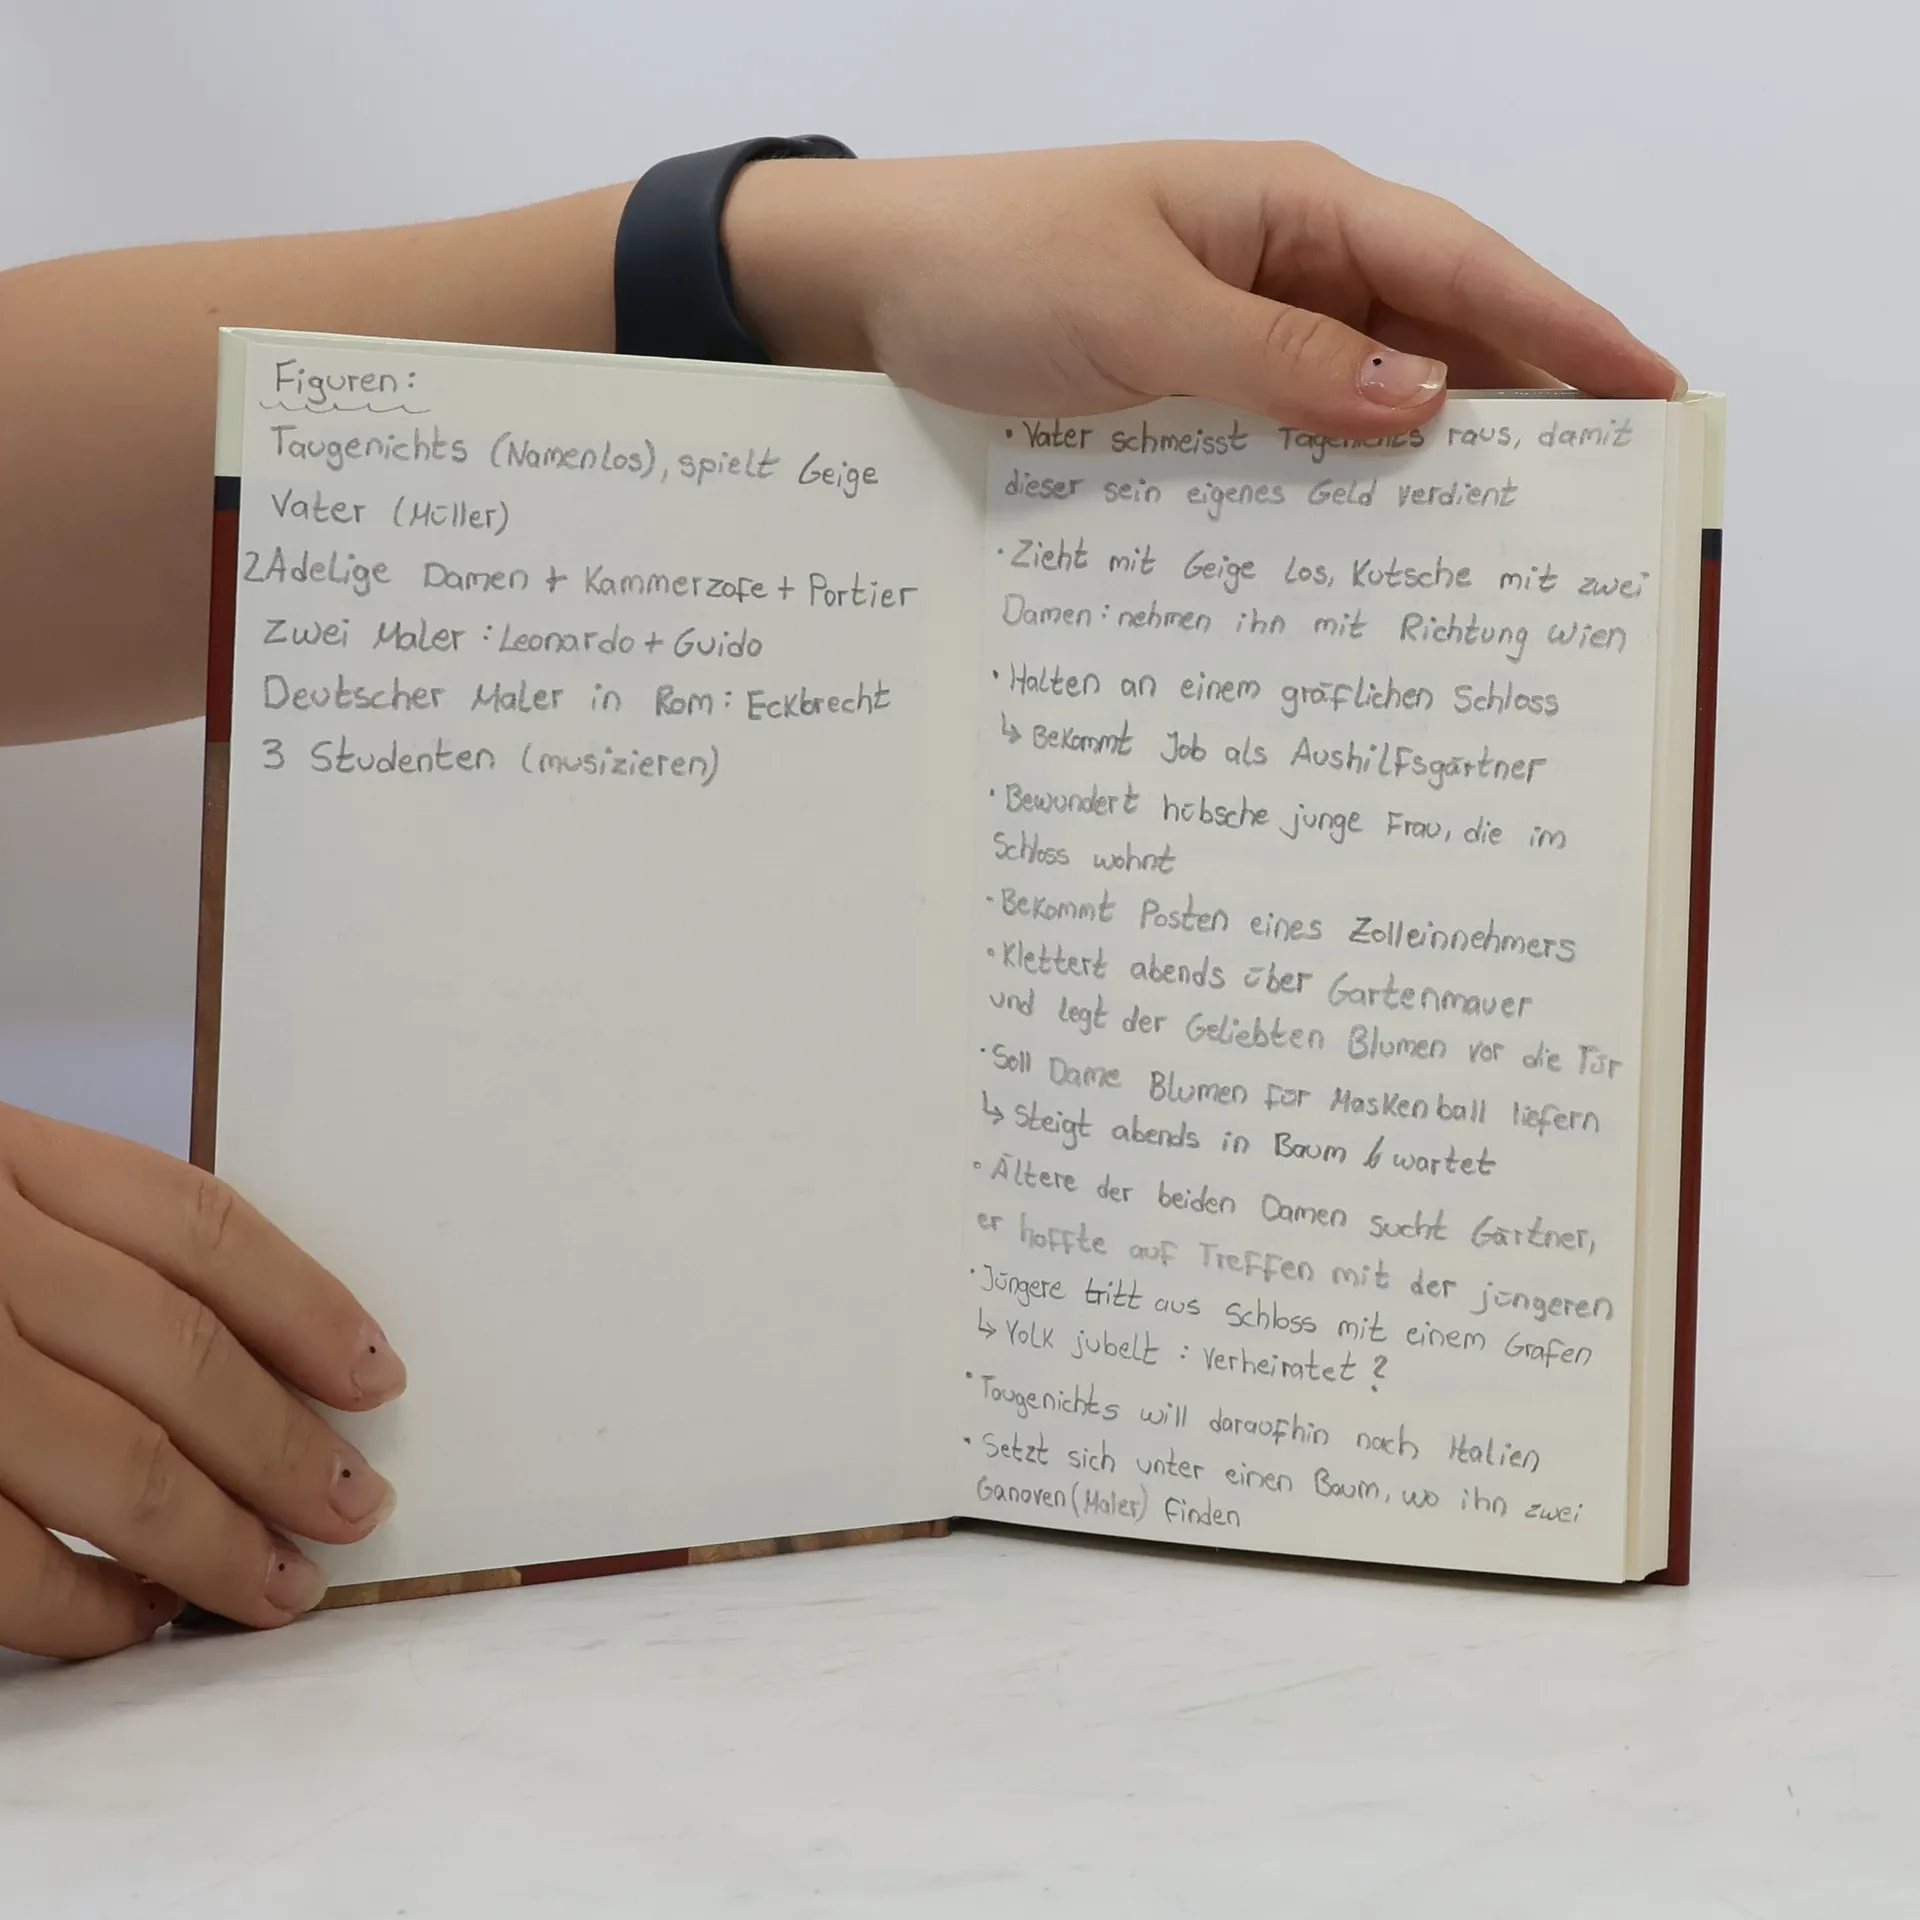 Figuren:
Taugenichts (Namenlos), spielt Geige
Vater (Müller)
2Adelige Damen + Kammerzofe + Portier
Zwei Maler : Leonardo + Guido
Deutscher Maler in Rom : Eckbrecht
3 Studenten (musizieren)
• Vater schmeisst Tagenichts raus, damit
dieser sein eigenes Geld verdient
• Zieht mit Geige los, Kutsche mit zwei
Damen : nehmen ihn mit Richtung Wien
• Halten an einem gräflichen Schloss
↳ Bekommt Job als Aushilfsgärtner
• Bewundert hübsche junge Frau, die im
Schloss wohnt
- Bekommt Posten eines Zolleinnehmers
• Klettert abends über Gartenmauer
und legt der Geliebten Blumen vor die Tür
• Soll Dame Blumen für Maskenball liefern
↳ Steigt abends in Baum & wartet
• Ältere der beiden Damen sucht Gärtner,
er hoffte auf Treffen mit der jüngeren
• Jüngere tritt aus Schloss mit einem Grafen
↳ Volk jubelt : Verheiratet ?
• Taugenichts will daraufhin nach Italien
• Setzt sich unter einen Baum, wo ihn zwei
Ganoven (Maler) finden